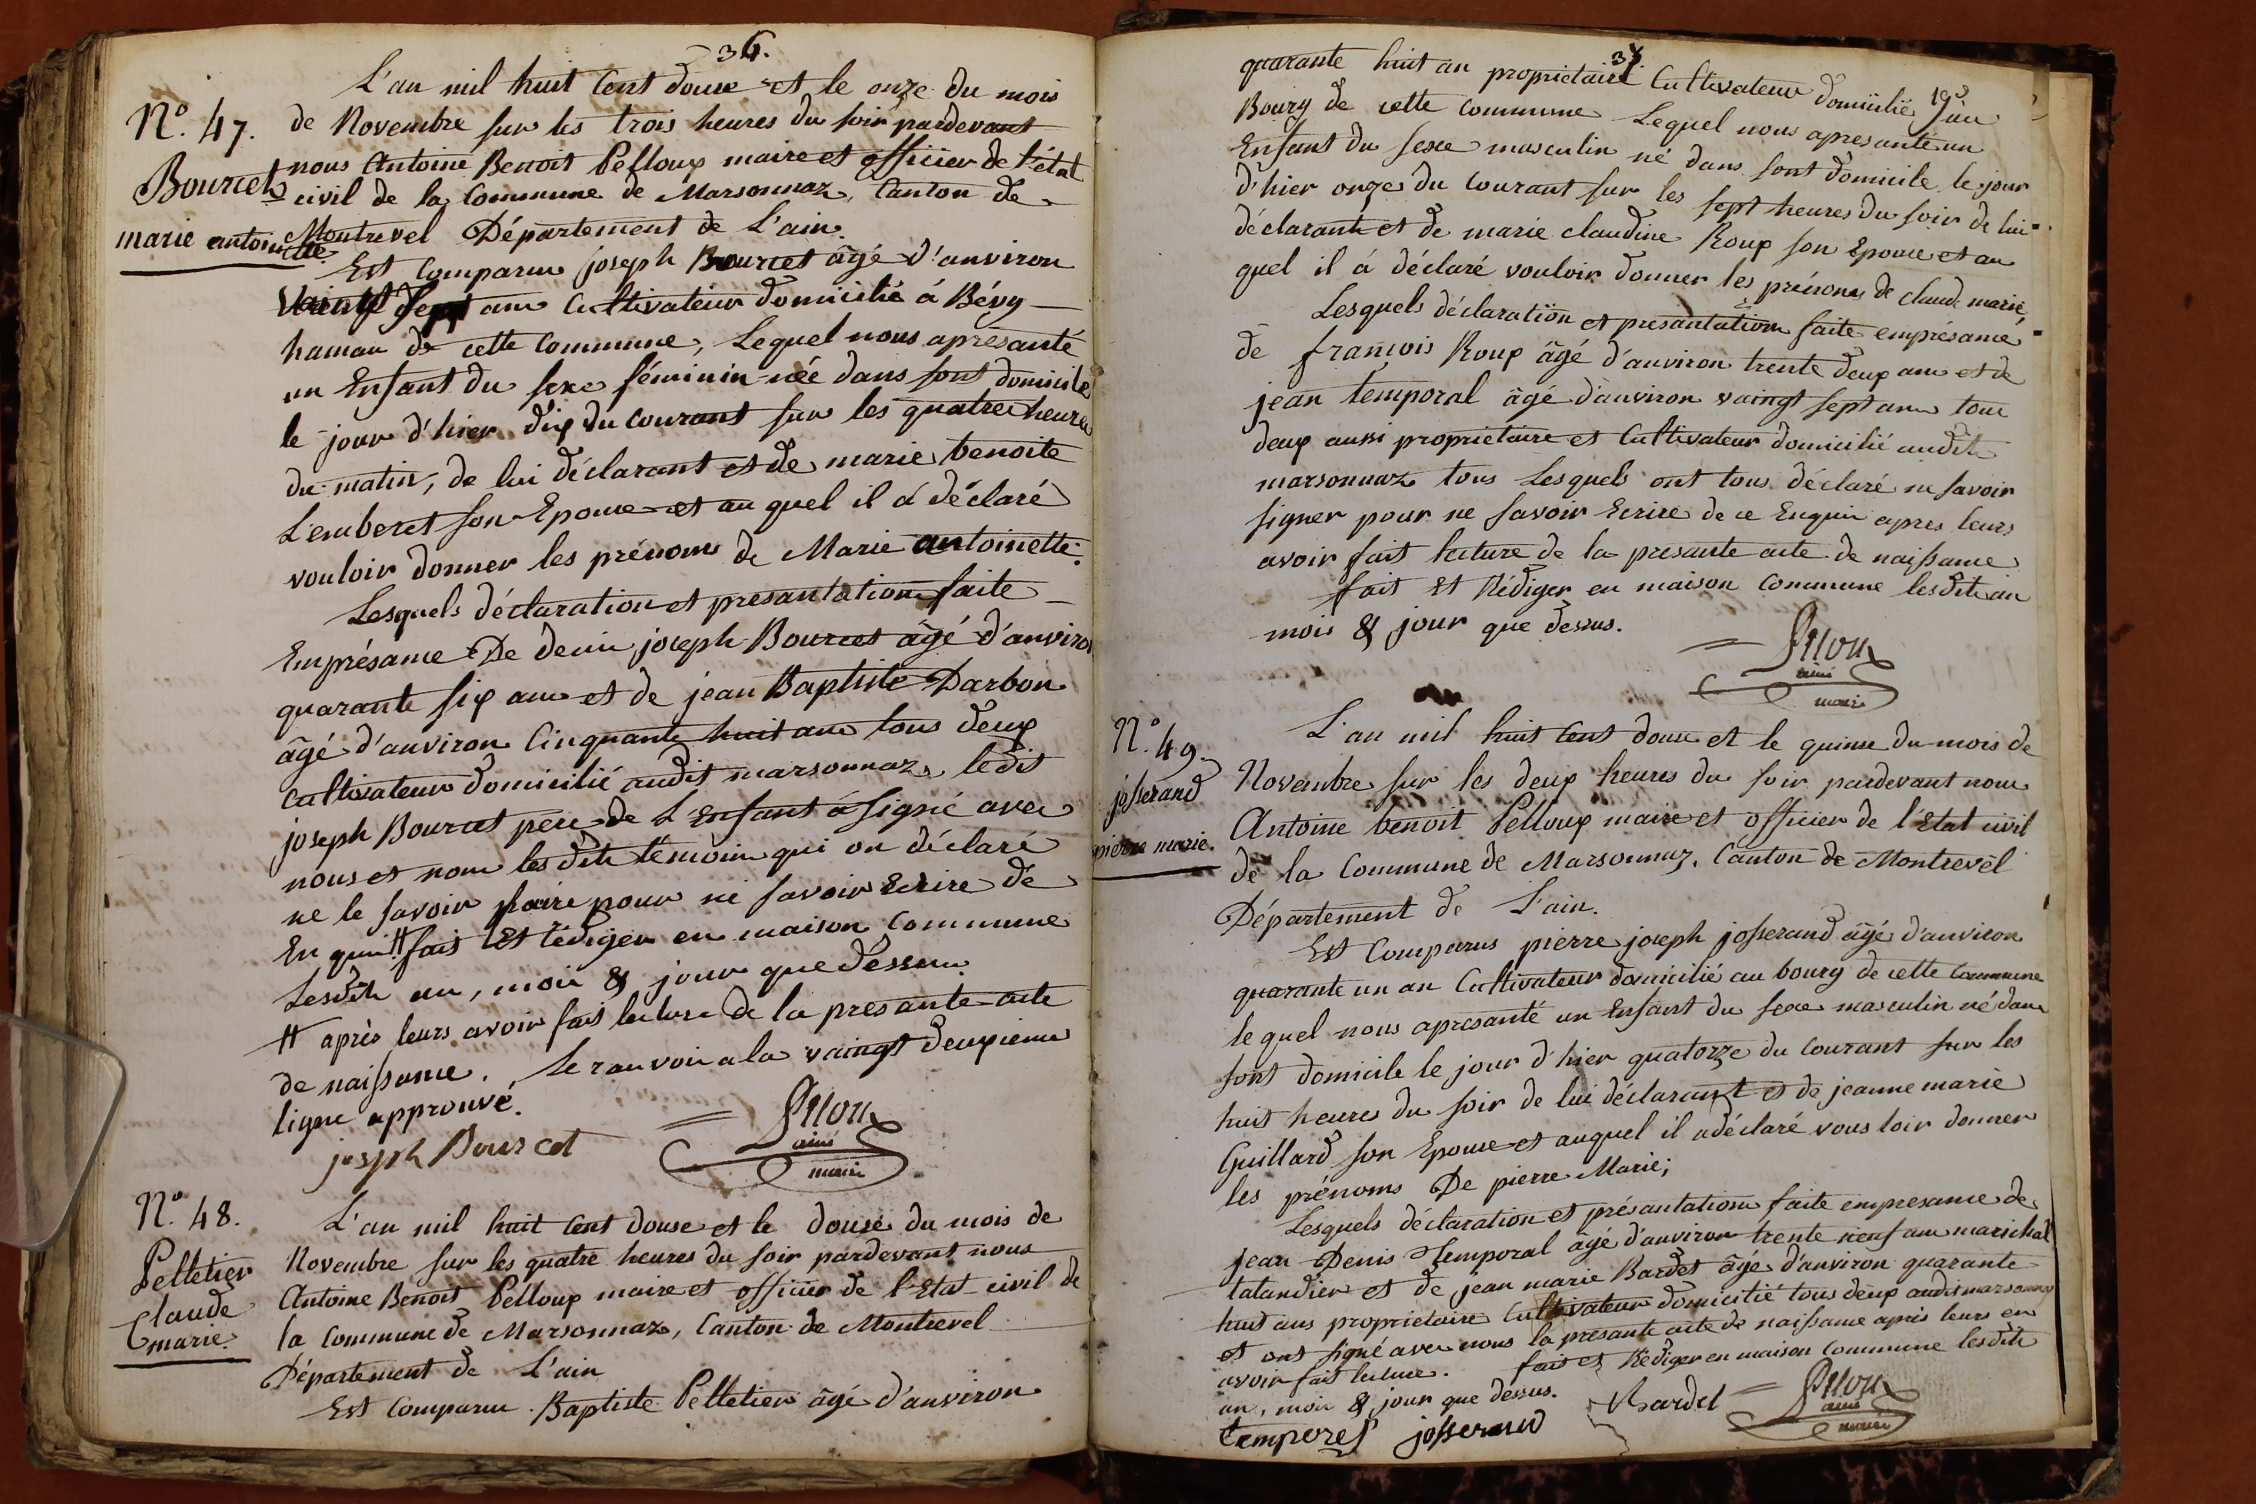 36.
L'an mil huit Cent douse et le onze du mois
Nº. 47.
de Novembre sur les trois heures du soir pardevant
nous Antoine Benoit Pelloux maire et officier de l'état
Bourcet
civil de la Commune de Marsonnaz, Canton de
marie antoinette
Montrevel Département de L'ain.
Est Comparu joseph Bourcet âgé d'anviron
vaingt Sept ans Cultivateur domicilié á Bévy
hamau de cette Commune, Lequel nous apresanté
un Enfant du sexe féminin née dans sont domicile
le jour d'hier dix du courant sur les quatre heures
du matin, de lui déclarant et de marie benoite
L'emberet son Epouse et au quel il á déclaré
vouloir donner les prénoms de Marie antoinette.
Lesquels déclaration et presantation faite
Emprésance De denis joseph Bourcet âgé d'anviron
quarante six ans et de jean Baptiste Darbon
âgé d'anviron Cinquante huit ans tous deux
Cultivateur domicilié audit marsonnaz, ledit
joseph Bourcet pere de L'Enfant á signé avec
nous et nom lesdits témoins qui on déclaré
ne le savoir faire pour ne savoir Ecrire de
En quis # fait Et rédiger en maison Commune
Lesdits an, mois & jour que déssus.
# après leurs avoir fais lecture de la presante acte
de naissance. Le ranvoi a la vaingt deuxieme
ligne approuvé.
joseph Bourcet
Pelloux
ainé
maire
Nº. 48.
L'an mil huit Cent douse et le douse du mois de
Pelletier
Claude
marie.
Novembre sur les quatre heures du soir pardevant nous
Antoine Benoit Pelloux maire et officier de l'Etat civil de
la Commune de Marsonnaz, Canton de Montrevel
Département de L'ain
Est Comparu Baptiste Pelletier âgé d'anviron
37.
quarante huit an proprietaire Cultivateur domicilié au
Bourg de cette Commune Lequel nous apresanté un
Enfant du sexe masculin né dans sont domicile le jour
d'hier onze du Courant sur les sept heures du soir de lui
déclarant et de marie claudine Roux son Epouse et au
quel il á déclaré vouloir donner les prénoms de claude marie,
Lesquels déclaration et presantation faite emprésance
de françois Roux âgé d'anviron trente deux ans et de
jean temporal âgé d'anviron vaingt sept ans tous
deux aussi proprietaire et Cultivateur domicilié audit
marsonnaz tous Lesquels ont tous déclaré ne savoir
signer pour ne savoir Ecrire de ce Enquis apres leurs
avoir fait lecture de la presante acte de naissance
fait Et Rédiger en maison Commune lesdits an
mois & jour que dessus.
Pelloux
ainé
maire
Nº. 49.
L'an mil huit Cent douse et le quinse du mois de
josserand
pierre marie.
Novembre sur les deux heures du soir pardevant nous
Antoine benoit Pelloux maire et officier de l'Etat civil
de la Commune de Marsonnaz, Canton de Montrevel
Département de L'ain.
Est Comparus pierre joseph josserand âgé d'anviron
quarante un an Cultivateur domicilié au bourg de cette Commune
lequel nous apresanté un Enfant du sexe masculin né dans
sont domicile le jour d'hier quatorze du Courant sur les
huit heures du soir de lui déclarant et de jeanne marie
Guillard son Epouse et auquel il adéclaré vous loir donner
les prénoms De pierre Marie;
Lesquels déclaration et présantation faite empresance de
jean Denis Temporal âgé d'anviron trente neuf ans marichal
talandier et de jean marie Bardet âgé d'anviron quarante
huit ans proprietaire Cultivateur domicilié tous deux audit marsonnaz
et ont signé avec nous la presante acte de naissance après leurs en
avoir fait lecture. fait et Rédiger en maison Commune lesdits
an, mois & jour que dessus.
temporel josserand Bardet
Pelloux
ainé
maire